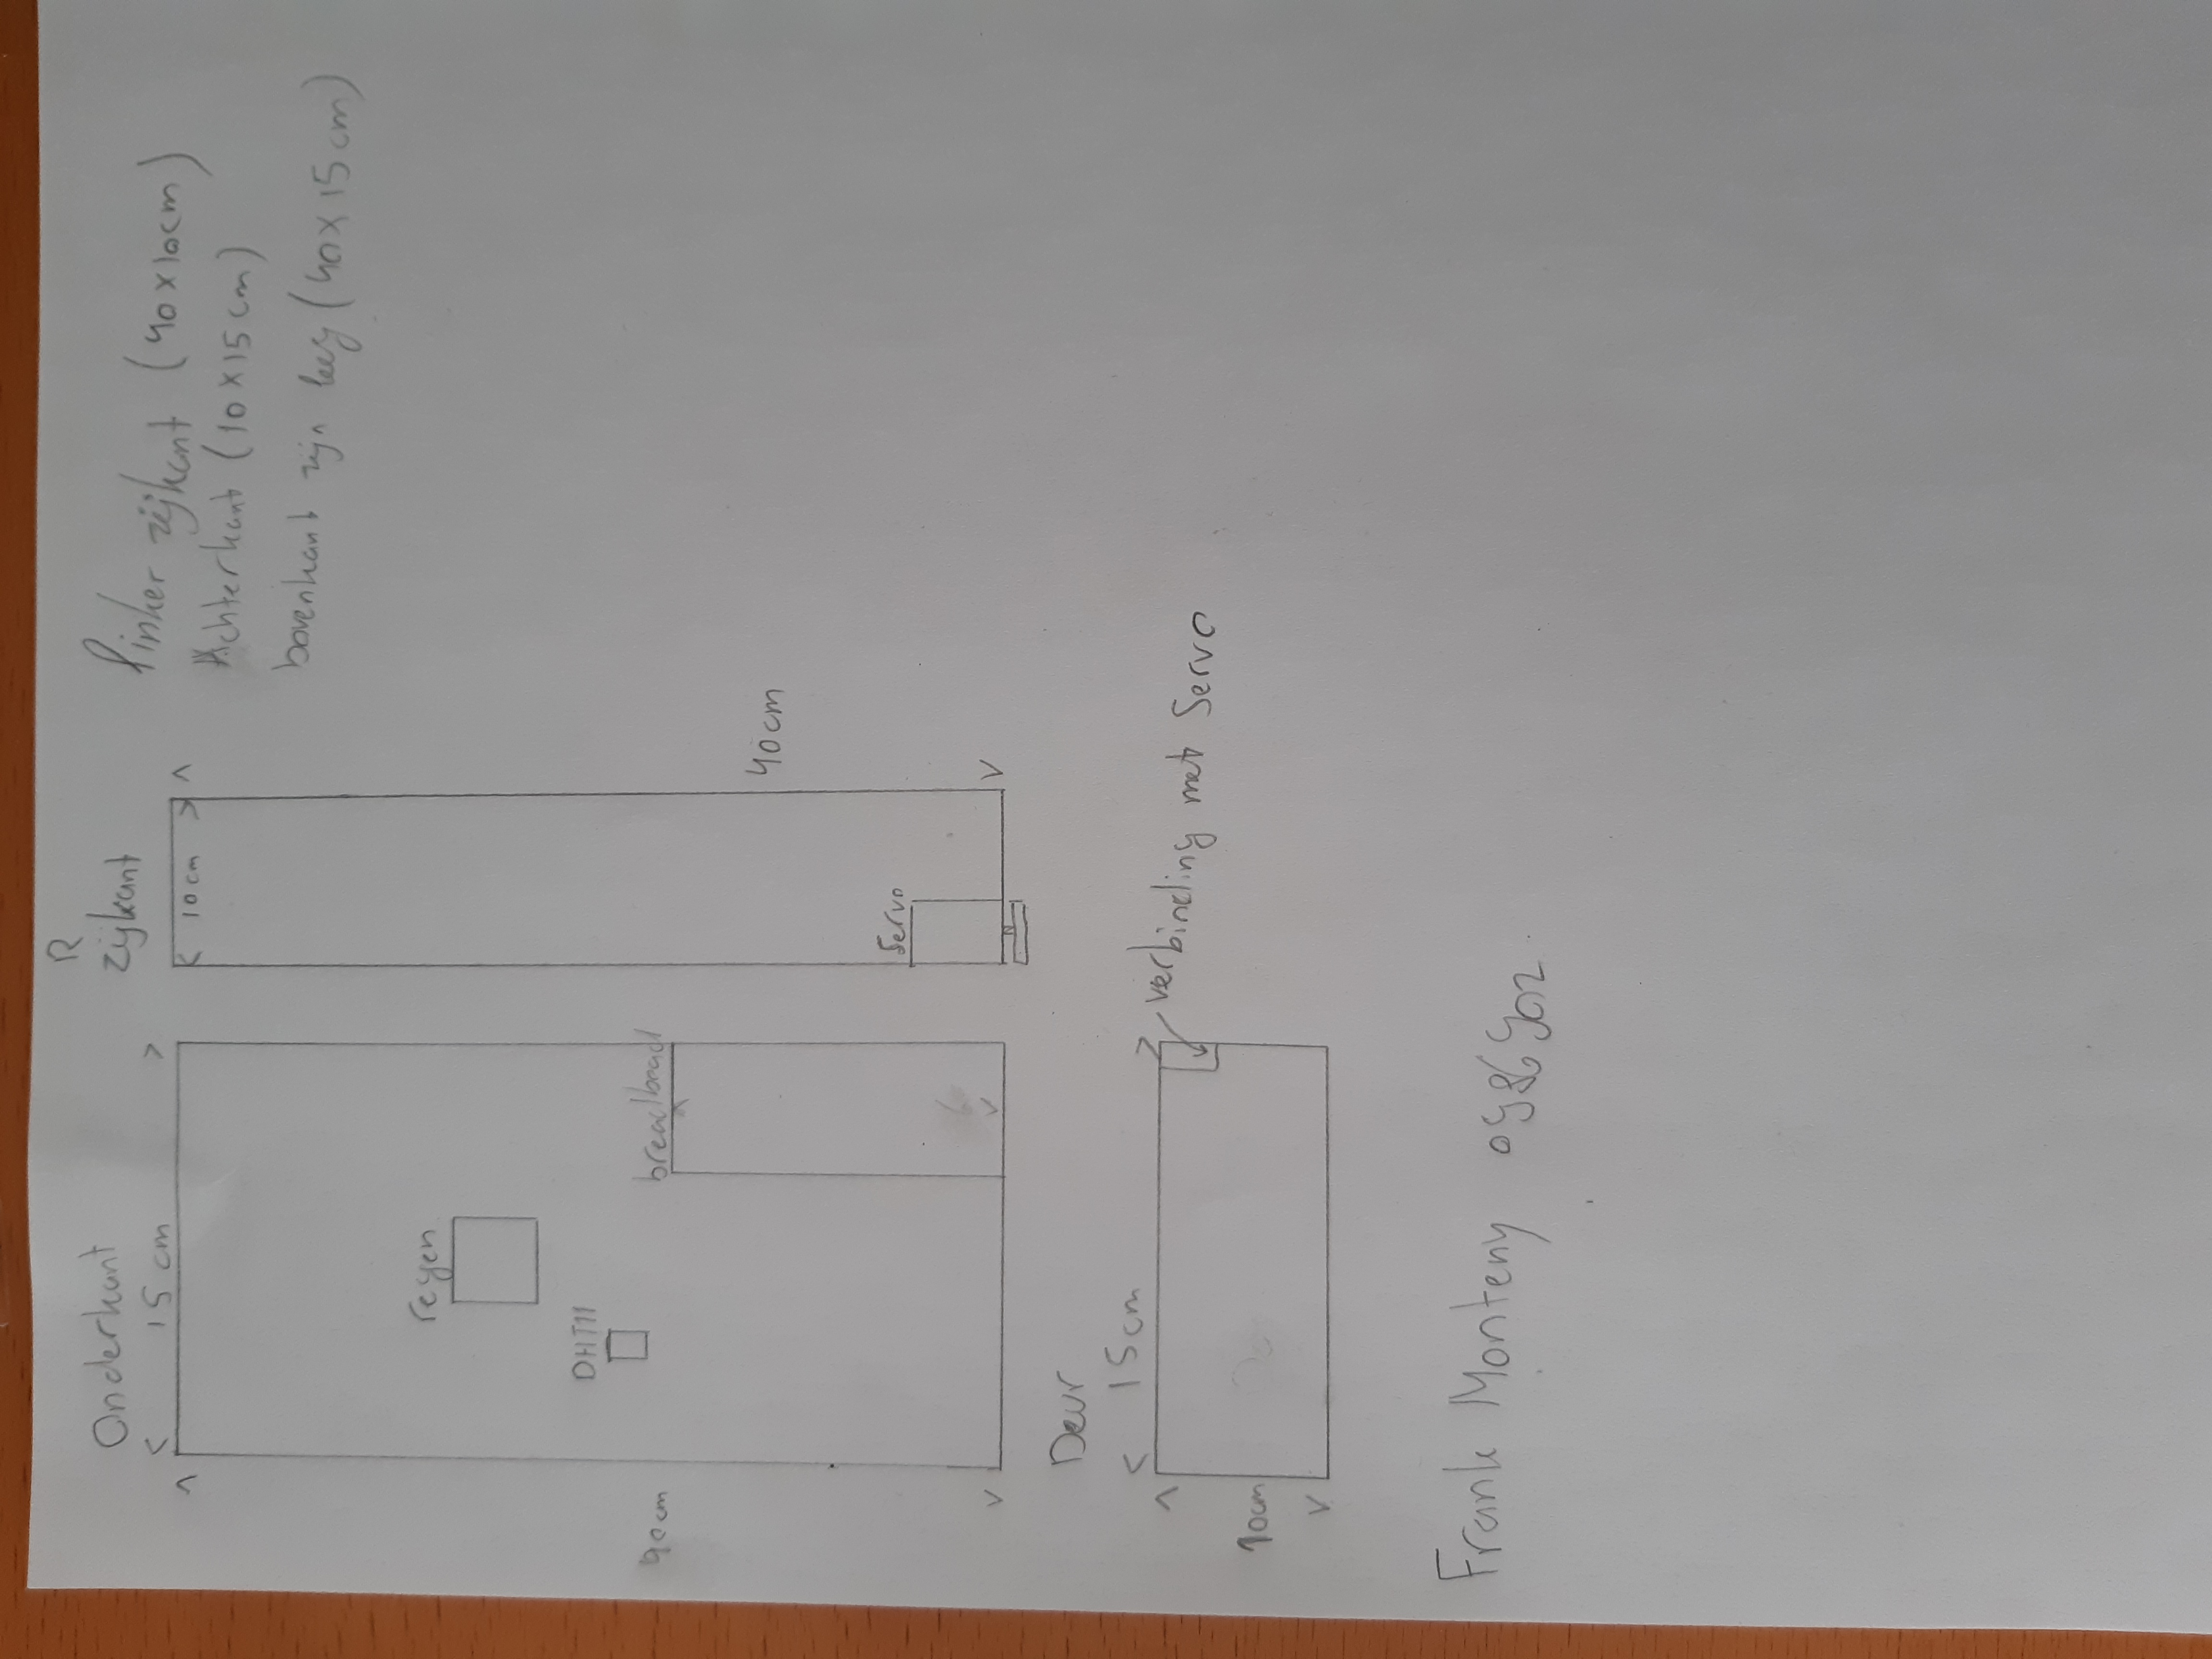 Onderkant
15 cm
40cm
regen
DHT11
breadboard
R
zijkant
10cm
40cm
Servo
linker zijkant (40x10cm)
Achterkant (10x15cm)
bovenkant zijn leeg (40x15cm)
Deur
15cm
10cm
verbinding met Servo
Frank Monteny